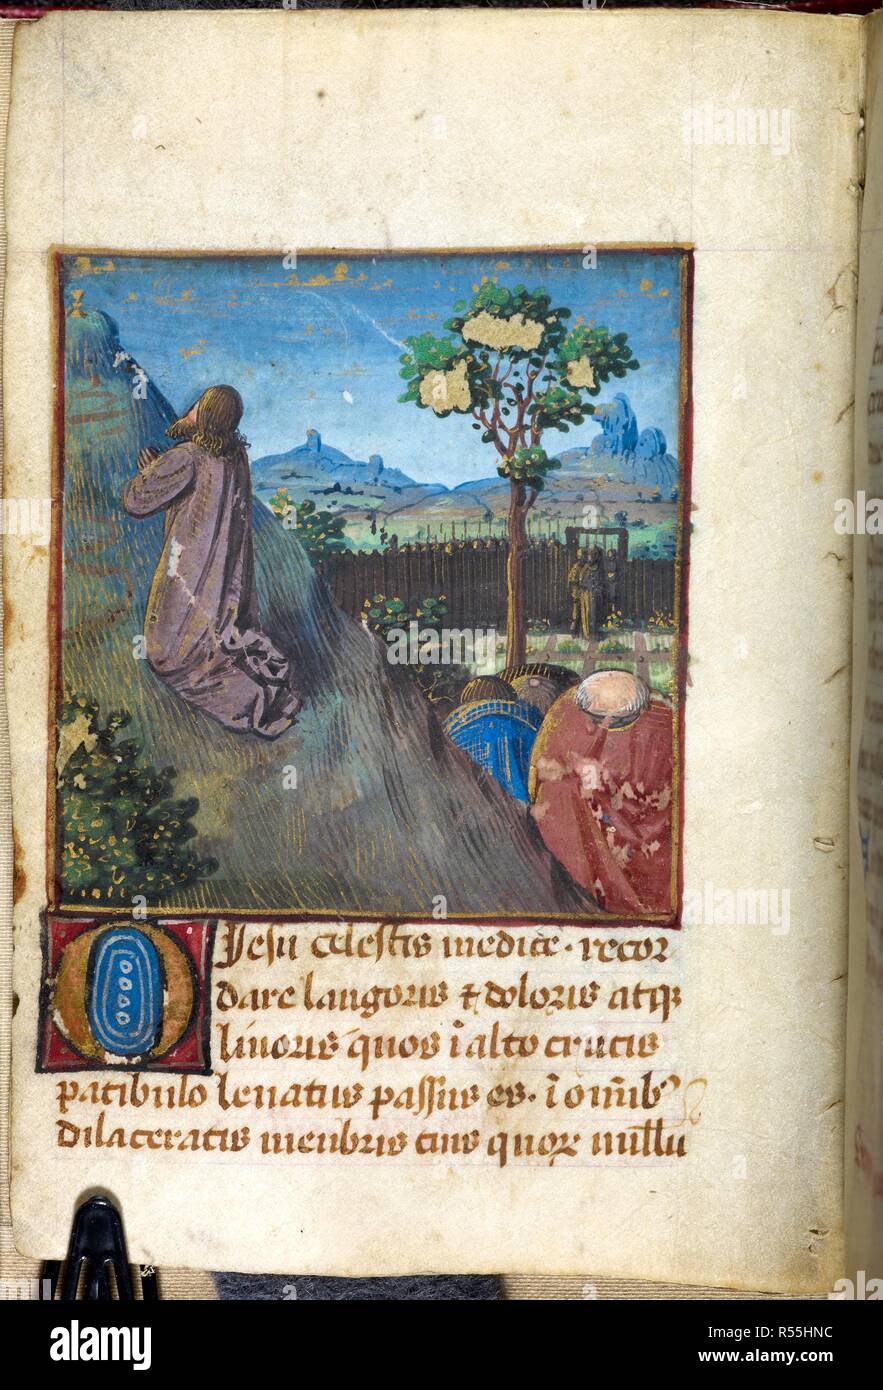 O Iesu celestis medice · recor
dare langoris & doloris atqȝ
liuoris quos ī alto crucis
patibulo leuatus passus es · ī om̄ibꝰ
dilaceratis menbris tuis quoꝝ null'u
alamy
a
a
a
a
alamy
alamy
Image ID: R55HNC
www.alamy.com